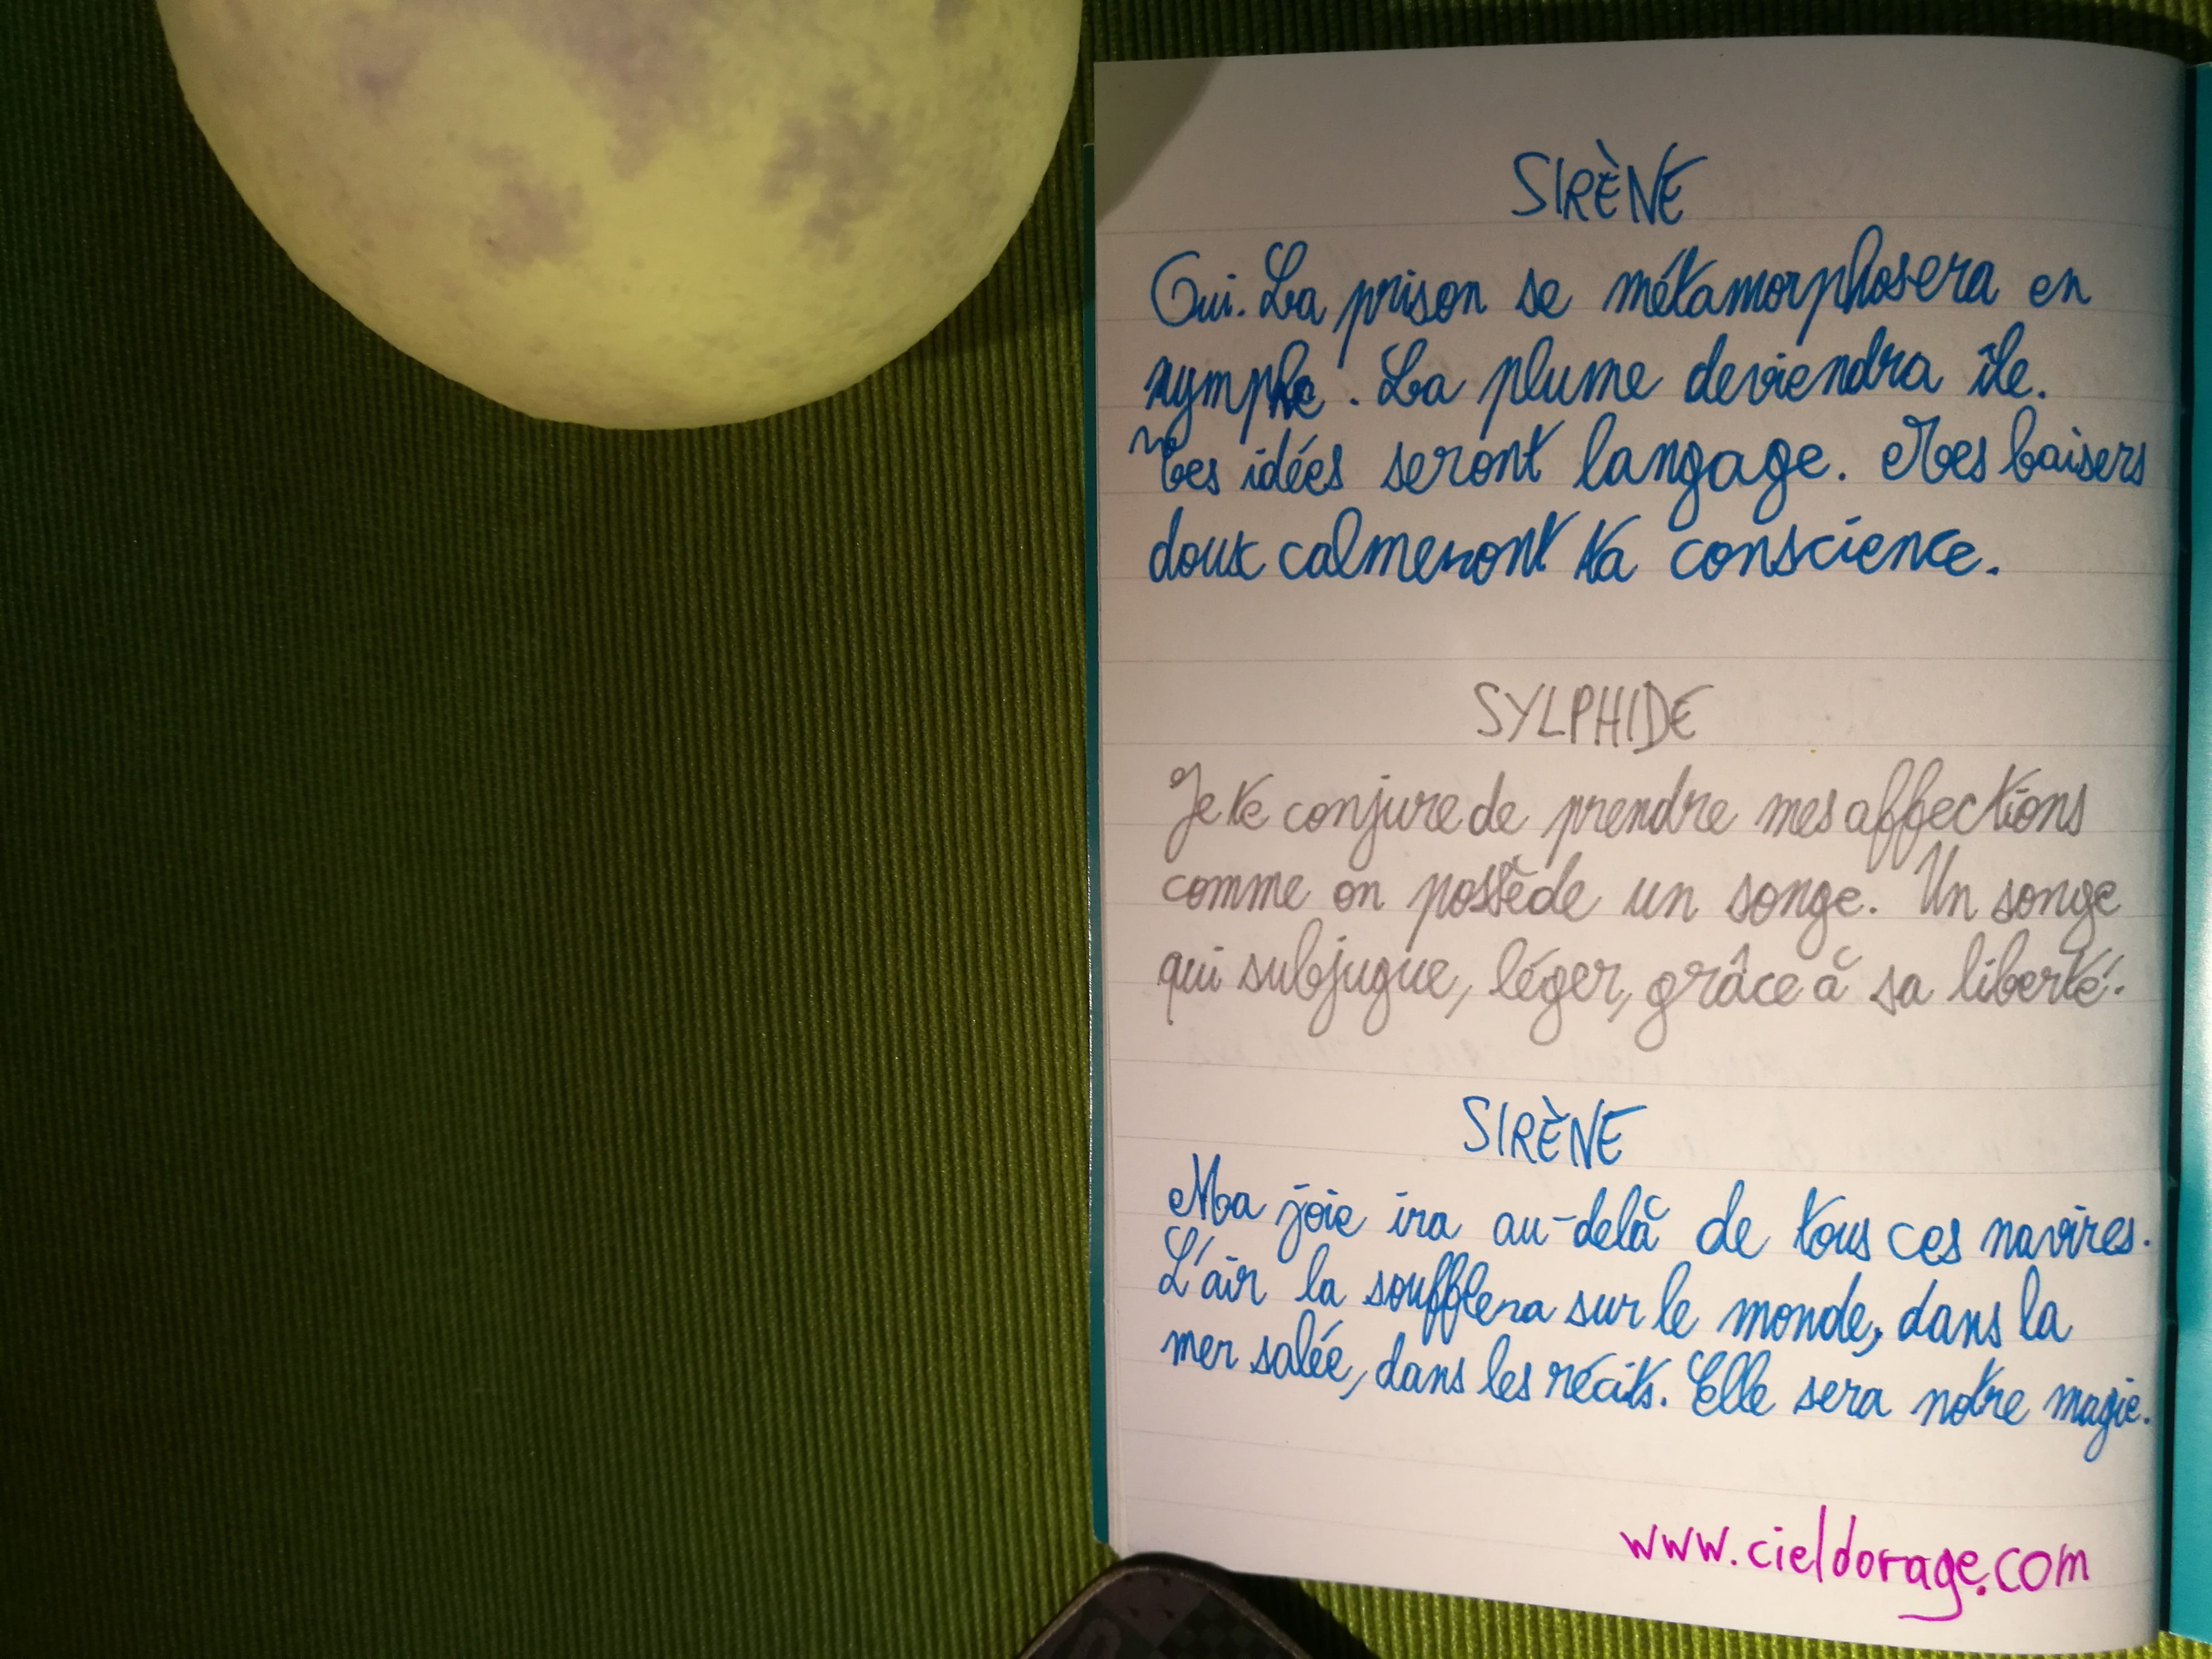 SIRÈNE
Oui. La prison se métamorphosera en
nymphe. La plume deviendra île.
Tes idées seront langage. Mes baisers
doux calmeront ta conscience.
SYLPHIDE
Je te conjure de prendre mes affections
comme on possède un songe. Un songe
qui subjugue, léger, grâce à sa liberté.
SIRÈNE
Ma joie ira au-delà de tous ces navires.
L'air la soufflera sur le monde, dans la
mer salée, dans les récits. Elle sera notre magie.
www.cieldorage.com